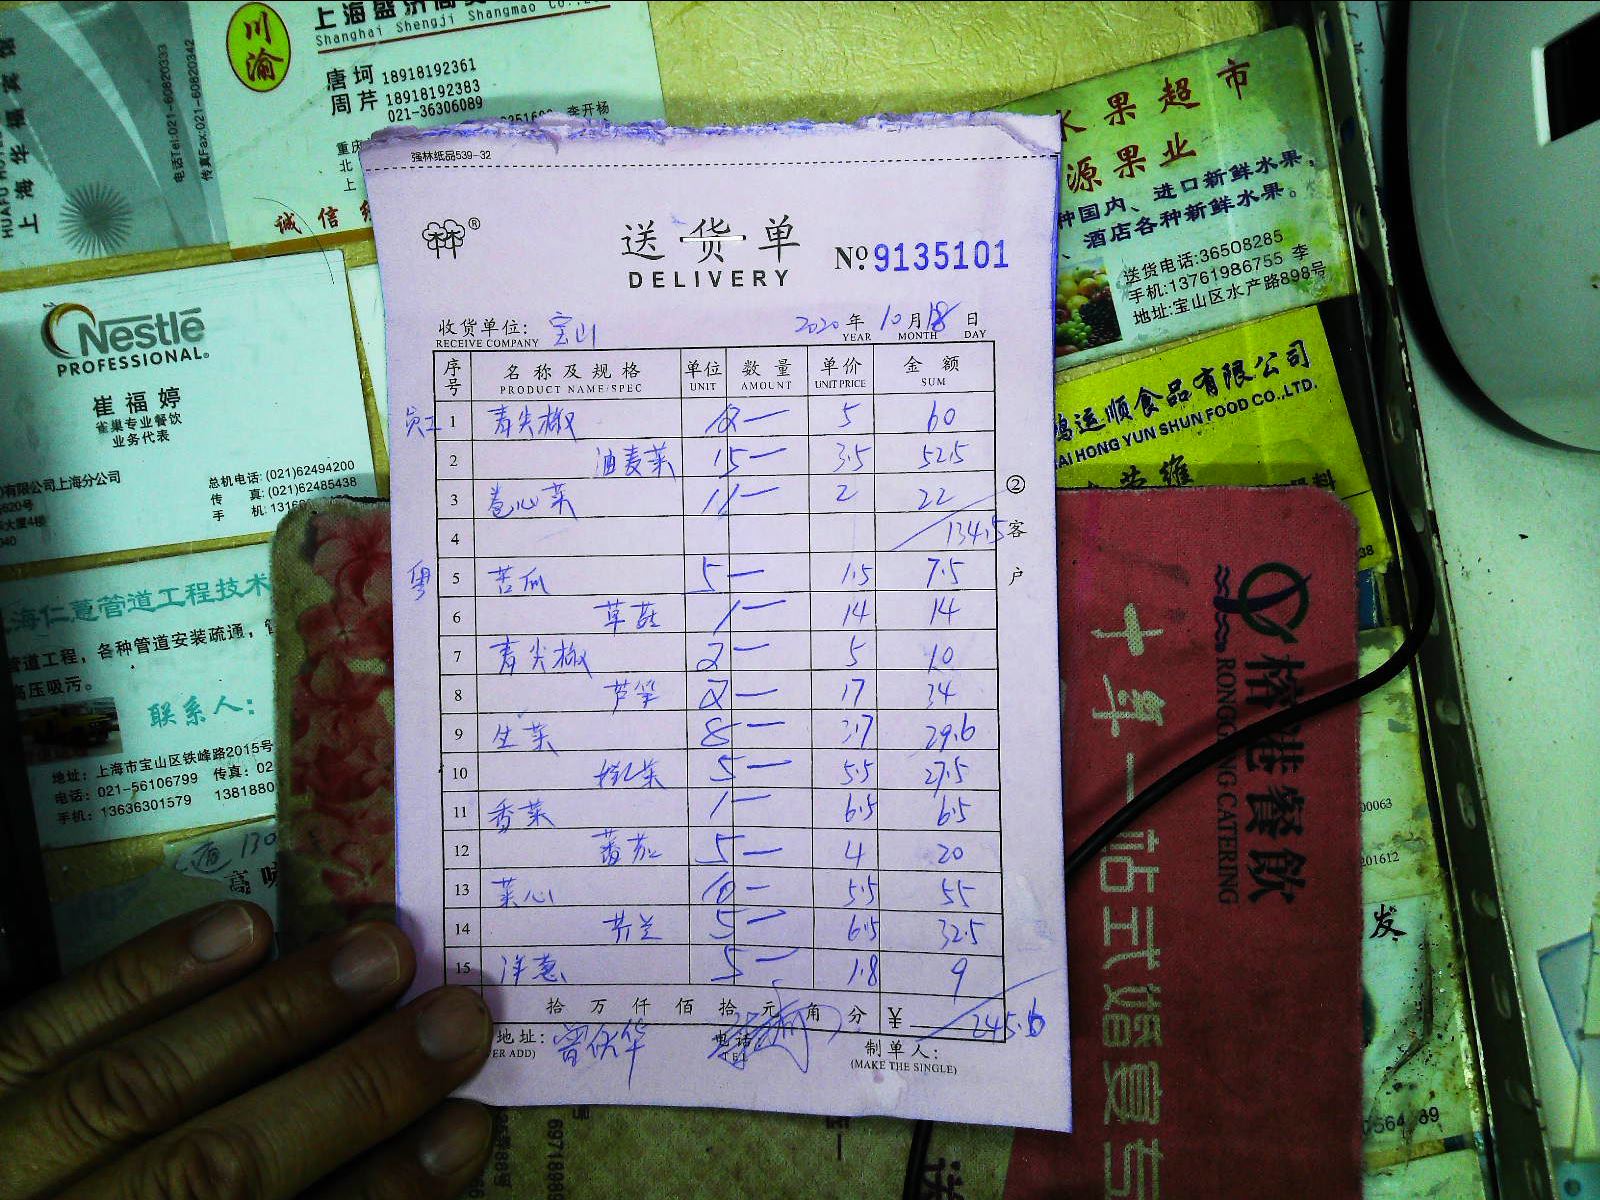 川渝
Shanghai Shengji Shangmao Co.,
唐 坷 18918192361
周 芹 18918192383
021-36306089
李开杨
诚 信
电话Tel:021-60820333
传真Fax:021-60820342
上海华福宾
Nestlé
PROFESSIONAL.
崔 福 婷
雀巢专业餐饮
业务代表
有限公司上海分公司
总机电话: (021)62494200
传 真: (021)62485438
手 机: 1316
海仁薏管道工程技术
管道工程，各种管道安装疏通，
高压吸污。
联系人：
地址：上海市宝山区铁峰路2015号
电话：021-56106799 传真：02
手机：13636301579 1381880
水 果 超 市
源 果 业
种国内、进口新鲜水果，
酒店各种新鲜水果。
送货电话:36508285
手机:13761986755 李
地址:宝山区水产路898号
鸿运顺食品有限公司
HAI HONG YUN SHUN FOOD CO.,LTD.
榕港餐飲
RONGGANG CATERING
十年一站式婚宴专
强林纸品539-32
送货单
DELIVERY
№ 9135101
收货单位： 宝山 2020 年 10 月 18 日
RECEIVE COMPANY YEAR MONTH DAY
序号 名称及规格 单位 数量 单价 金额
PRODUCT NAME/SPEC UNIT AMOUNT UNIT PRICE SUM
员工 1 青尖椒 12— 5 60
2 油麦菜 15— 3.5 52.5
3 卷心菜 11— 2 22
4 134.5
粤 5 苦瓜 5— 1.5 7.5
6 草菇 1— 14 14
7 青尖椒 2— 5 10
8 芦笋 2— 17 34
9 生菜 8— 3.7 29.6
10 5— 5.5 27.5
11 香菜 1— 6.5 6.5
12 番茄 5— 4 20
13 菜心 10— 5.5 55
14 芥兰 5— 6.5 32.5
15 洋葱 5— 1.8 9
拾 万 仟 佰 拾 元 角 分 ¥ 245.6
地址： 电话 制单人：
ER ADD) TEL (MAKE THE SINGLE)
② 客 户